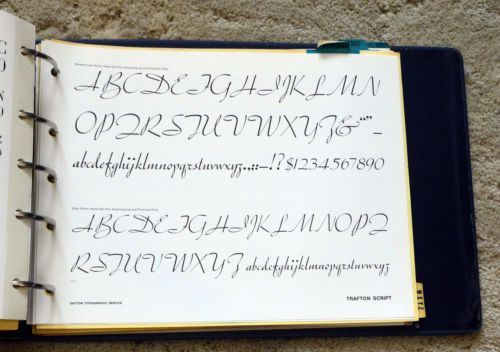 ABCDEFGHIJKLMN
OPQRSTUVWXYZ&“”–
abcdefghijklmnopqrstuvwxyz.,:;–!?$1234567890
ABCDEFGHIJKLMNOPQ
RSTUVWXYZ abcdefghijklmnopqrstuvwxyz
DAYTON TYPOGRAPHIC SERVICE
TRAFTON SCRIPT